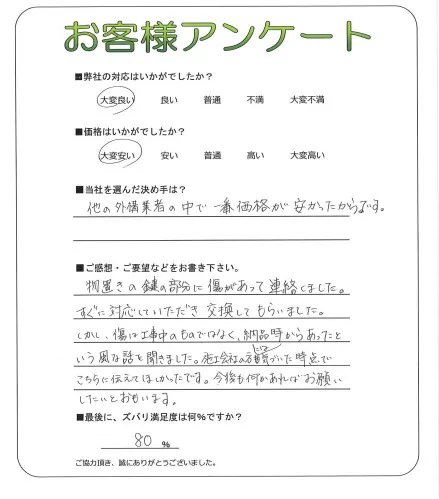 お客様アンケート
■弊社の対応はいかがでしたか？
大変良い 良い 普通 不満 大変不満
■価格はいかがでしたか？
大変安い 安い 普通 高い 大変高い
■当社を選んだ決め手は？
他の外構業者の中で一番価格が安かったからです。
■ご感想・ご要望などをお書き下さい。
物置きの鍵の部分に傷があって連絡しました。
すぐに対応していただき交換してもらいました。
しかし、傷は工事中のものではなく、納品時からあったと
いう風な話を聞きました。施工会社の方が気づいた時点で
こちらに伝えてほしかったです。今後も何かあればお願い
したいとおもいます。
■最後に、ズバリ満足度は何％ですか？
80 %
ご協力頂き、誠にありがとうございました。